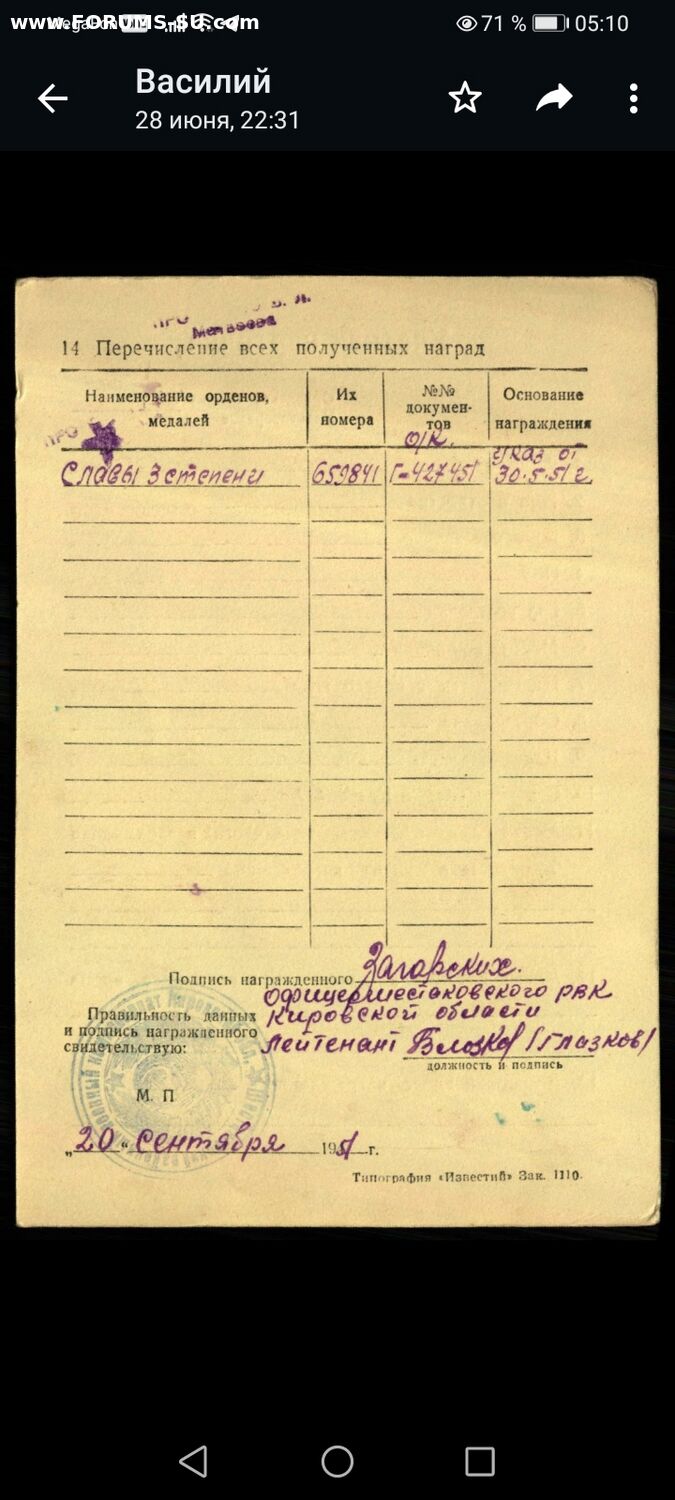 www.FORUMS-SU.com
71 % 05:10
Василий
28 июня, 22:31
Матвеева
14 Перечисление всех полученных наград
Наименование орденов, медалей
Их номера
№№ документов
Основание награждения
О/К.
Славы 3 степени 659841 Г-427451 Указ от 30.5.51 г.
Подпись награжденного Загарских.
офицер шестаковского рвк
Правильность данных Кировской области
и подпись награжденного
свидетельствую: Лейтенант (Глазков)
должность и подпись
М. П
„20“ сентября 1951 г.
Типография «Известий» Зак. 1110.